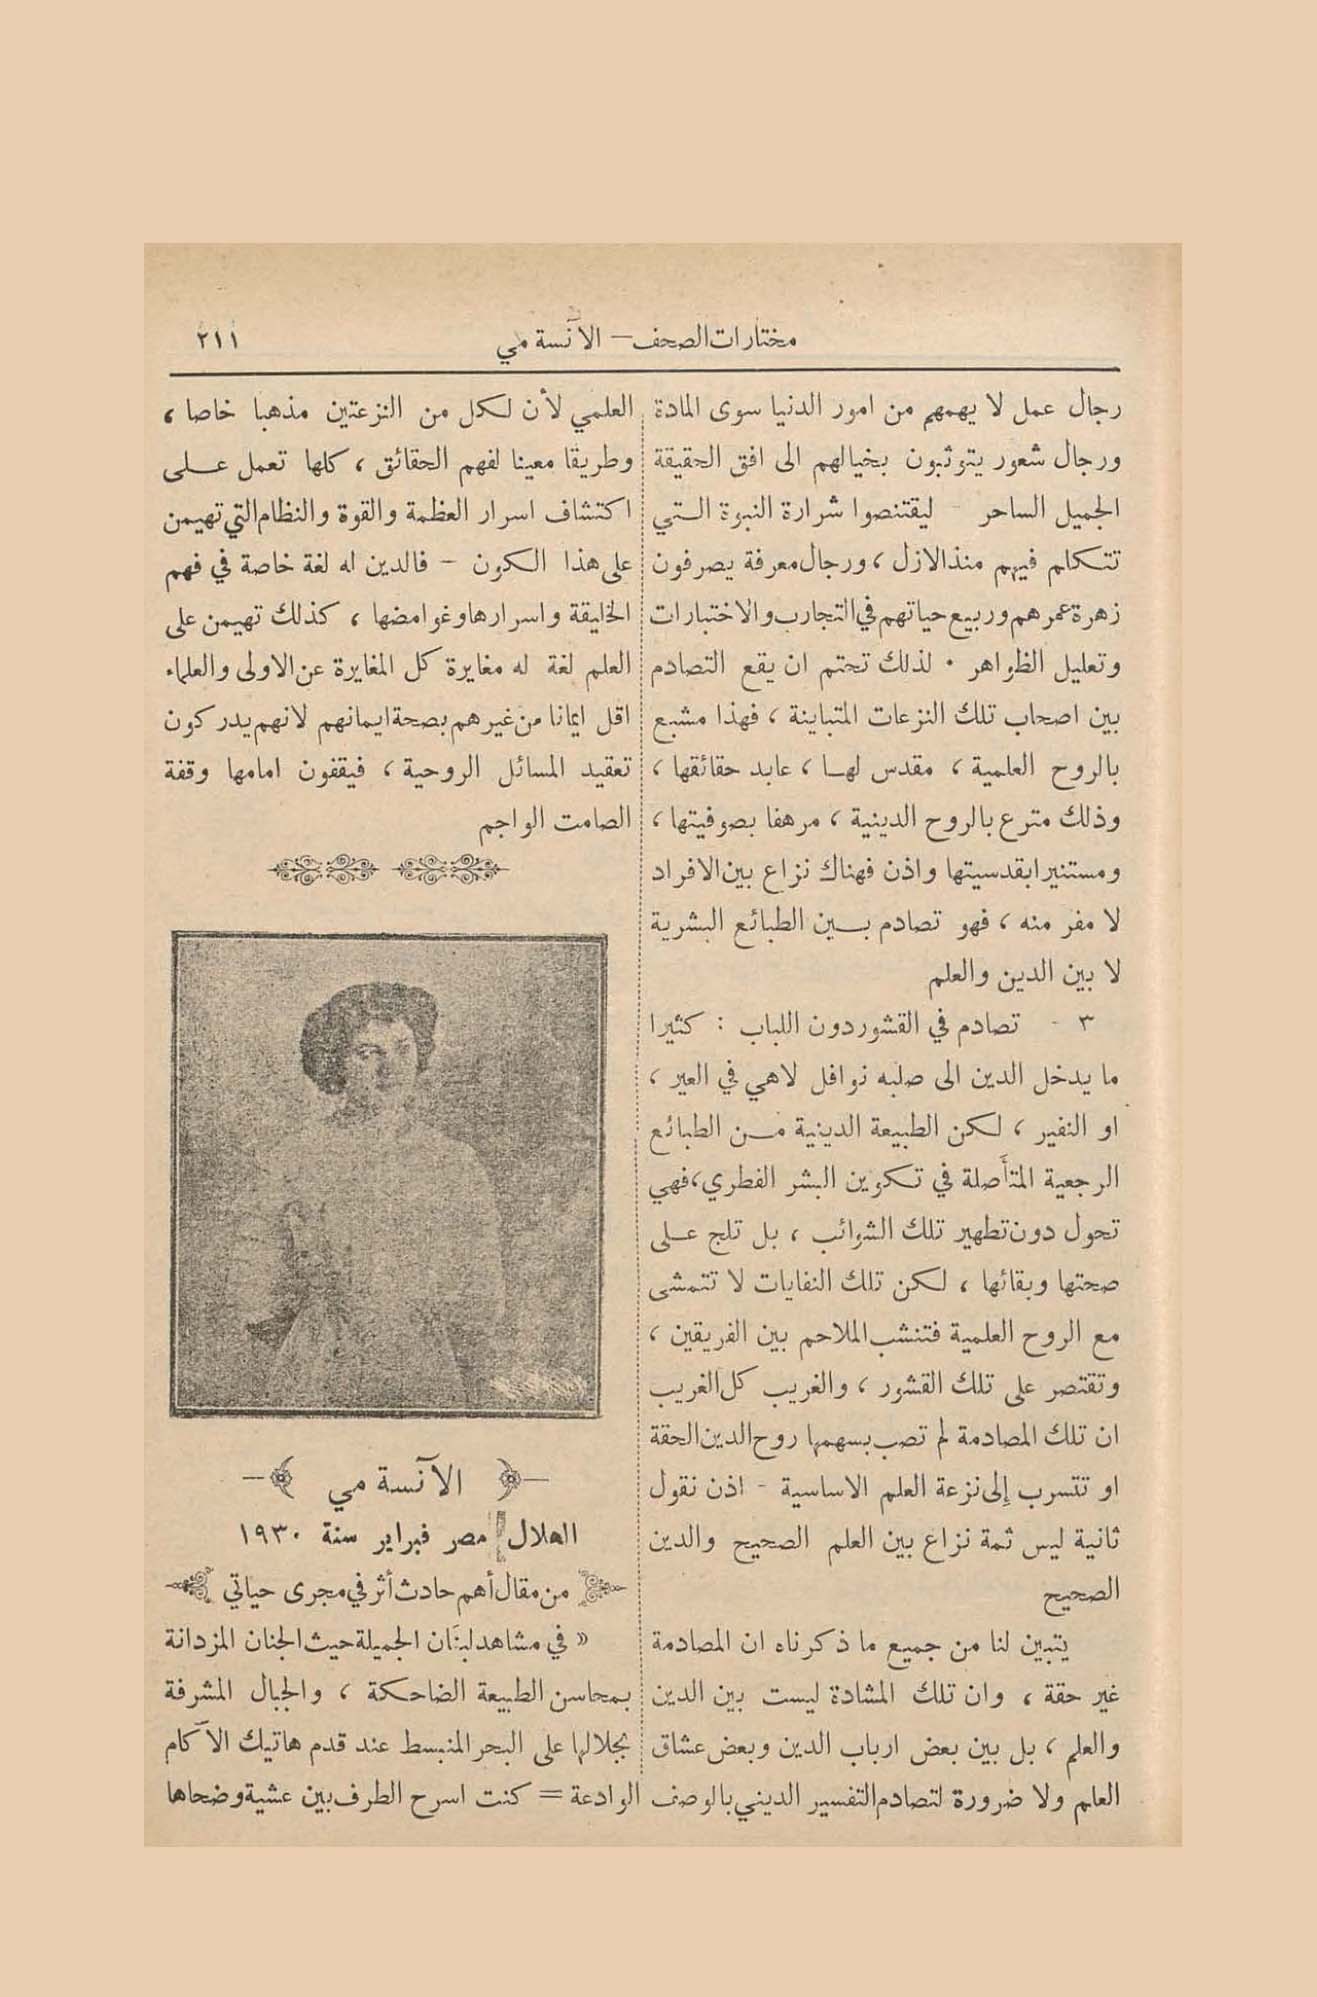 مختارات الصحف — الآنسة مي ٢١١
رجال عمل لا يهمهم من امور الدنيا سوى المادة
ورجال شعور يتوثبون بخيالهم الى افق الحقيقة
الجميل الساحر - ليقتنصوا شرارة النبوة التي
تتكلم فيهم منذ الازل ، ورجال معرفة يصرفون
زهرة عمرهم وربيع حياتهم في التجارب والاختبارات
وتعليل الظواهر . لذلك تحتم ان يقع التصادم
بين اصحاب تلك النزعات المتباينة ، فهذا مشبع
بالروح العلمية ، مقدس لها ، عابد حقائقها ،
وذلك مترع بالروح الدينية ، مرهفا بصوفيتها ،
ومستنيرا بقدسيتها واذن فهناك نزاع بين الافراد
لا مفر منه ، فهو تصادم بين الطبائع البشرية
لا بين الدين والعلم
٣ - تصادم في القشور دون اللباب : كثيرا
ما يدخل الدين الى صلبه نوافل لاهي في العير ،
او النفير ، لكن الطبيعة الدينية من الطبائع
الرجعية المتأصلة في تكوين البشر الفطري ، فهي
تحول دون تطهير تلك الشوائب ، بل تلج على
صحتها وبقائها ، لكن تلك النفايات لا تتمشى
مع الروح العلمية فتنشب الملاحم بين الفريقين ،
وتقتصر على تلك القشور ، والغريب كل الغريب
ان تلك المصادمة لم تصب بسهمها روح الدين الحقة
او تتسرب إلى نزعة العلم الاساسية - اذن نقول
ثانية ليس ثمة نزاع بين العلم الصحيح والدين
الصحيح
يتبين لنا من جميع ما ذكرناه ان المصادمة
غير حقة ، وان تلك المشادة ليست بين الدين
والعلم ، بل بين بعض ارباب الدين وبعض عشاق
العلم ولا ضرورة لتصادم التفسير الديني بالوصف
العلمي لأن لكل من النزعتين مذهبا خاصا ،
وطريقا معينا لفهم الحقائق ، كلها تعمل على
اكتشاف اسرار العظمة والقوة والنظام التي تهيمن
على هذا الكون - فالدين له لغة خاصة في فهم
الخليقة واسرارها وغوامضها ، كذلك تهيمن على
العلم لغة له مغايرة كل المغايرة عن الاولى والعلماء
اقل ايمانا من غيرهم بصحة ايمانهم لانهم يدركون
تعقيد المسائل الروحية ، فيقفون امامها وقفة
الصامت الواجم
الآنسة مي
الهلال مصر فبراير سنة ١٩٣٠
من مقال أهم حادث أثر في مجرى حياتي
« في مشاهد لبنان الجميلة حيث الجنان المزدانة
بمحاسن الطبيعة الضاحكة ، والجبال المشرفة
بجلالها على البحر المنبسط عند قدم هاتيك الآكام
الوادعة = كنت اسرح الطرف بين عشية وضحاها